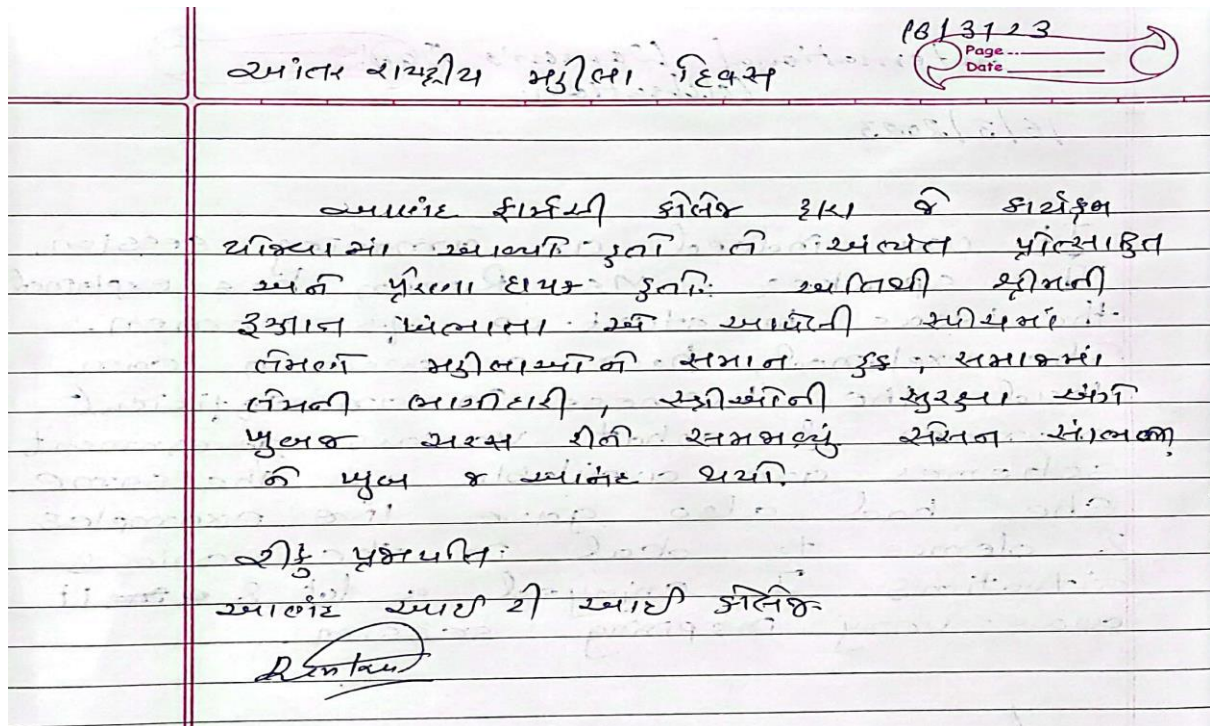 16/3/23
Page
Date
આંતર રાષ્ટ્રીય મહીલા દિવસ
આણંદ ફાર્મસી કોલેજ દ્વારા જે કાર્યક્રમ
યોજવામાં આવ્યો હતો તે અત્યંત પ્રોત્સાહિત
અને પ્રેરણા દાયક હતો. અતિથી શ્રીમતી
એ આપેલી સ્પીચમાં
તેમણે મહીલાઓ ને સમાન હક, સમાજમાં
તેમની ભાગીદારી, સ્ત્રીઓની સુરક્ષા અંગે
ખુબજ સરસ રીતે સમજાવ્યું
ને ખુબ જ આનંદ થયો.
રીંકુ પ્રજાપતિ
આણંદ આઈ ટી આઈ કોલેજ